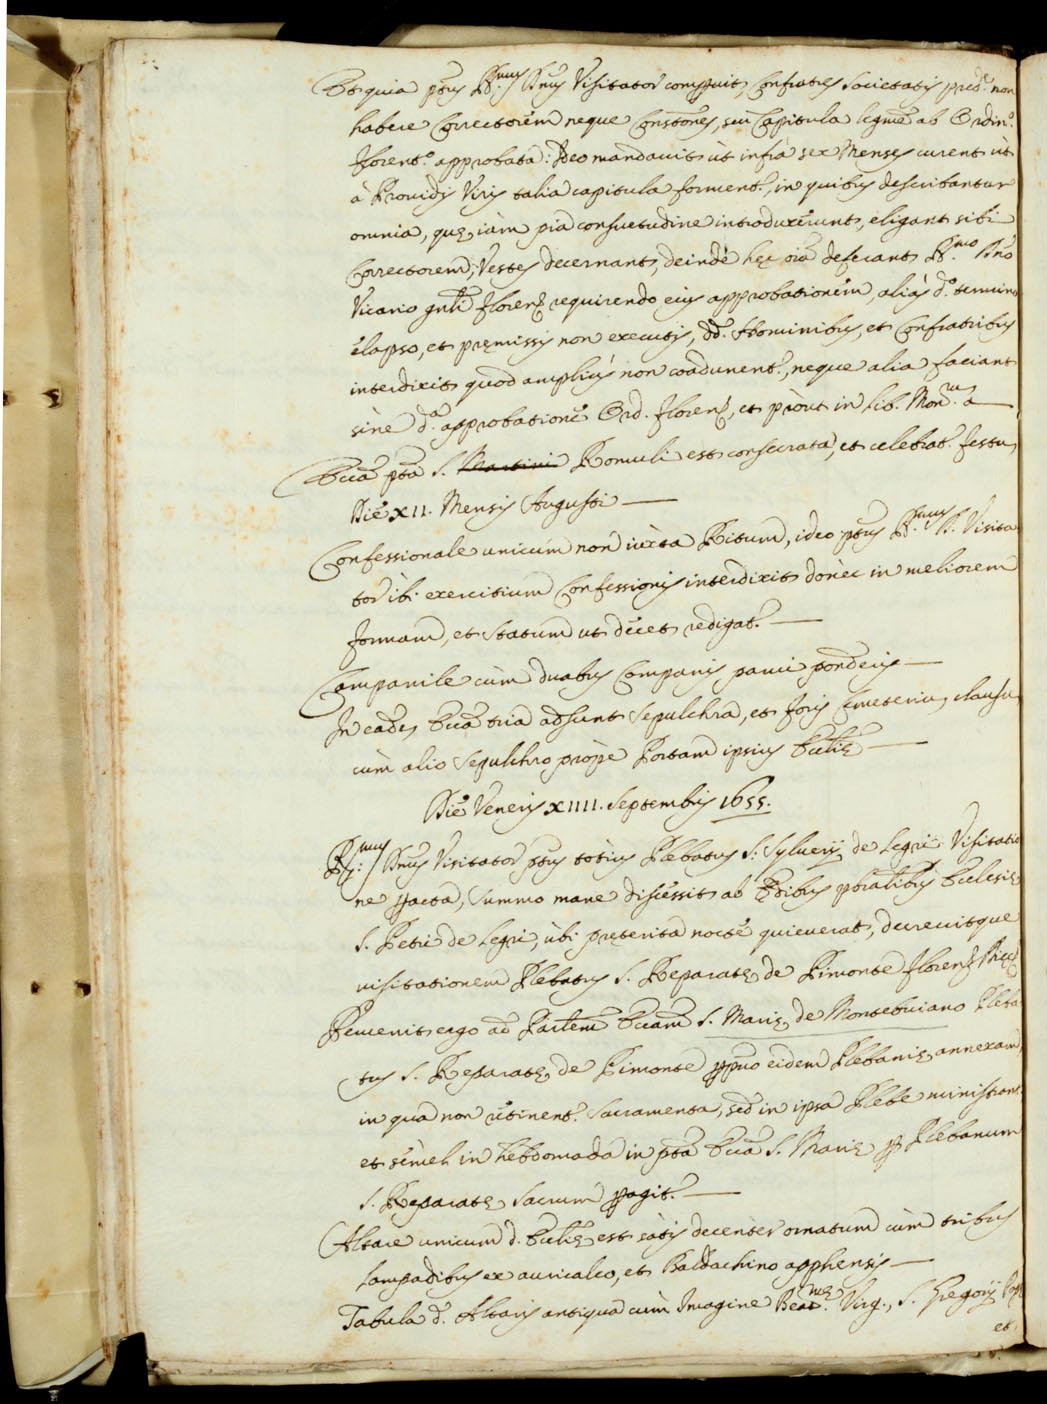 Et quia p̃tus R.mus D̃nus Visitator comperuit, Confratres Societatis pred.e non
habere Correctorem neque Constõnes, seu Capitula legitimẽ ab Ordin.o
Florent.o approbata: Ideo mandavit ùt infrà sex Menses curent ùt
à Providis Viris talia capitula forment.r, in quibus describantur
omnia, quę iàm pià consuetudine introduxerunt, eligant sibi
Correctorem, Vestes decernant, deindè hęc oĩa deferant R.mo D̃no
Vicario gñli Floren. requirendo eius approbationem, aliàs d.o termino
elapso, et pręmissis non executis, dd. Hominibus, et Confratribus
interdixit quòd ampliùs non coadunent.r, neque alia faciant
sine d.a approbatione Ord. Floren., et pròut in lib. Mon.
Ecc̃a p̃ta S. Martini Romuli est consecrata, et celebrat.r festu
Die XII. Mensis Augusti —
Confessionale unicum non iuxta Ritum, ideo p̃tus R.mus D. Visita
tor ibi exercitium Confessionis interdixit donèc in meliorem
formam, et statum ut decet redigat.r —
Campanile cùm duabus Campanis parui ponderis —
In eadẽ Ecc̃a tria adsunt sepulchra, et foris Cimeteriu, clausu
cùm alio sepulchro pròpe Portam ipsius Ecclię —
Die Veneris XIIII. Septembris 1655.
R.mus D̃nus Visitator p̃tus totius Plebatus S. Sylverij de Legri Visitatio
ne peracta, summo mane discessit ab Ędibus p̃bralibus Ecclesię
S. Petri de Legri, ùbi pręterita nocte quieuerat, decreuitque
visitationem Plebatus S. Reparatę de Pimonte Floren.
Peruenit ergo ad Ecc̃am S. Marię de Montebuiano Pleba
tus S. Reparatę de Pimonte perpetuo eidem Plebanię annexam,
in qua non retinent.r Sacramenta, sed in ipsa Plebe ministrant.r
et semel in hebdomada in p̃ta Ecc̃a S. Marię per Plebanum
S. Reparatę Sacrum peragit.r —
Altare unicum d. Ecclię est sàtis decenter ornatum cùm tribus
Lampadibus ex auricalco, et Baldachino appenso —
Tabula d. Altaris antiqua cùm Imagine Beat.mę Virg., S. Gregorij Pape
et